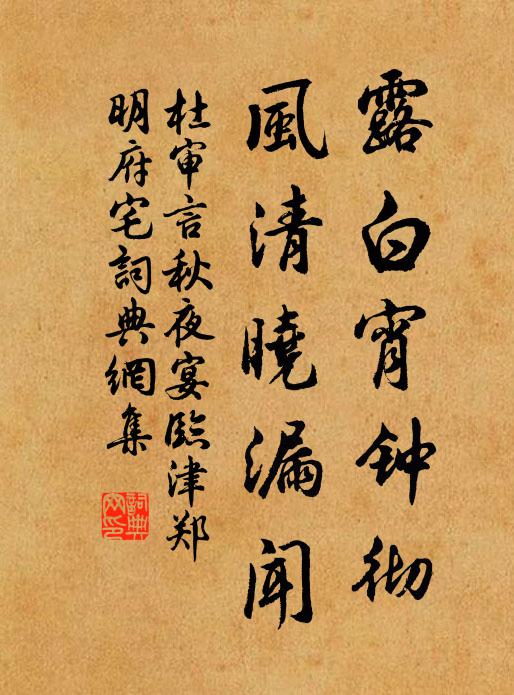 露白宵钟彻
風清曉漏聞
杜审言秋夜宴臨津郑
明府宅詞典網集
詞典网印